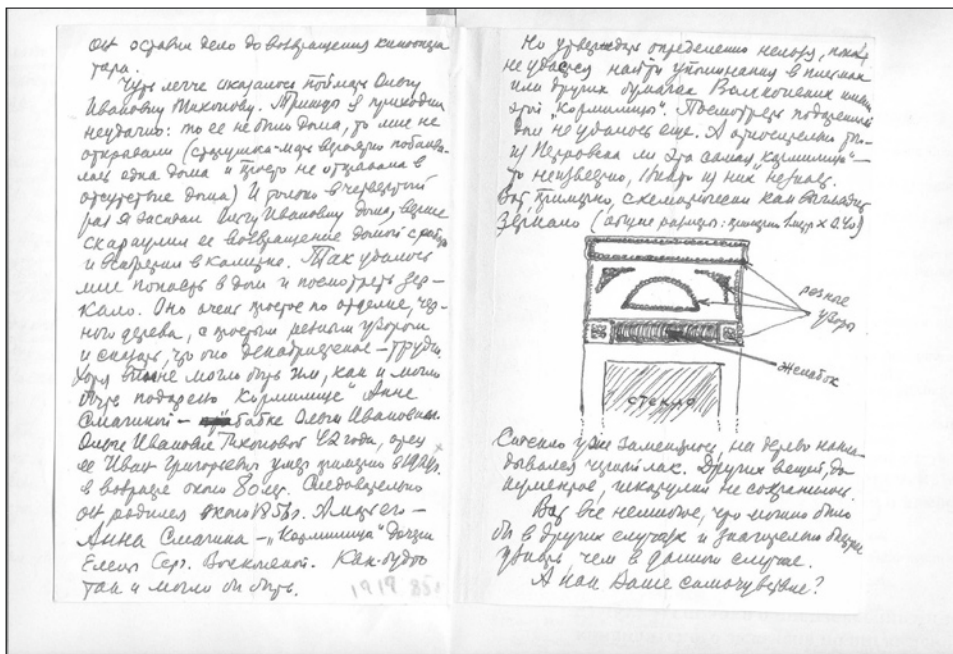 он оставил дело до возвращения киноопера
тора.
Чуть легче оказалось поймать Ольгу
Ивановну Тихонову. Трижды я приходил
неудачно: то ее не было дома, то мне не
открывали (старушка-мать вероятно побаива-
лась одна дома и просто не отпирала в
отсутствие дома) И только в четвертый
раз я застал Ольгу Ивановну дома, вернее
скараулил ее возвращение домой с работы
и встретил в калитке. Так удалось
мне попасть в дом и посмотреть зер-
кало. Оно очень простое по отделке, чер-
ного дерева, с простым резным узором
и сказать, что оно декабристское – трудно.
Хотя вполне могло быть им, как и могло
быть подарено "Кормилице" Анне
Смагиной – прабабке Ольги Ивановны.
Ольге Ивановне Тихоновой 42 года, отец
ее Иван Григорьевич умер примерно в 19
в возрасте около 80 лет. Следовательно
он родился около 1856. А мать его –
Анна Смагина – "Кормилица" дочери
Елены Серг. Волконской. Как будто
так и могло бы быть.
Но утверждать определенно нельзя, пока
не удастся найти упоминания в письмах
или других бумагах Волконских имени
этой "Кормилицы". Посмотреть подаренный
дом не удалось еще. А относительно то-
из Петровска ли эта самая "кормилица" –
то неизвестно, никто из них не знает.
Вот, примерно, схематически как выглядит
зеркало (общие размеры: примерно 1 метр х 0.40)
резные
узоры
желобок
стекло
Стекло уже заменялось, на дерево накла-
дывался черный лак. Других вещей, до-
кументов, шкатулки не сохранилось.
Вот все немногое, что можно было
бы в других случаях и значительно быстрее
увидеть, чем в данном случае.
А как Ваше самочувствие?